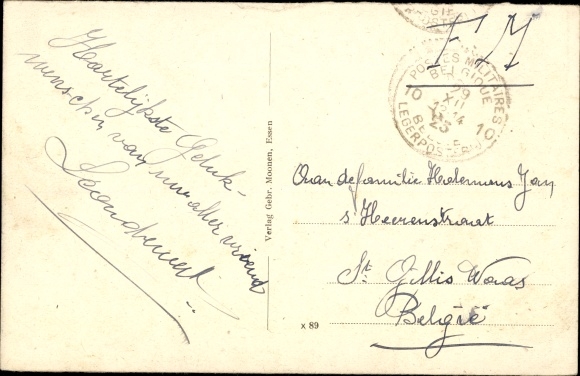 Hartelijkste Geluk-
wenschen van uw aller vriend
Verlag Gebr. Moonen, Essen
x 89
F M
POSTES MILITAIRES
BELGIQUE
10 10
29
XII
12-14
23
BELGIE
LEGERPOSTERIJ
Aan de familie Holemans Jan
s' Heerenstraat
St. Gillis Waas
België